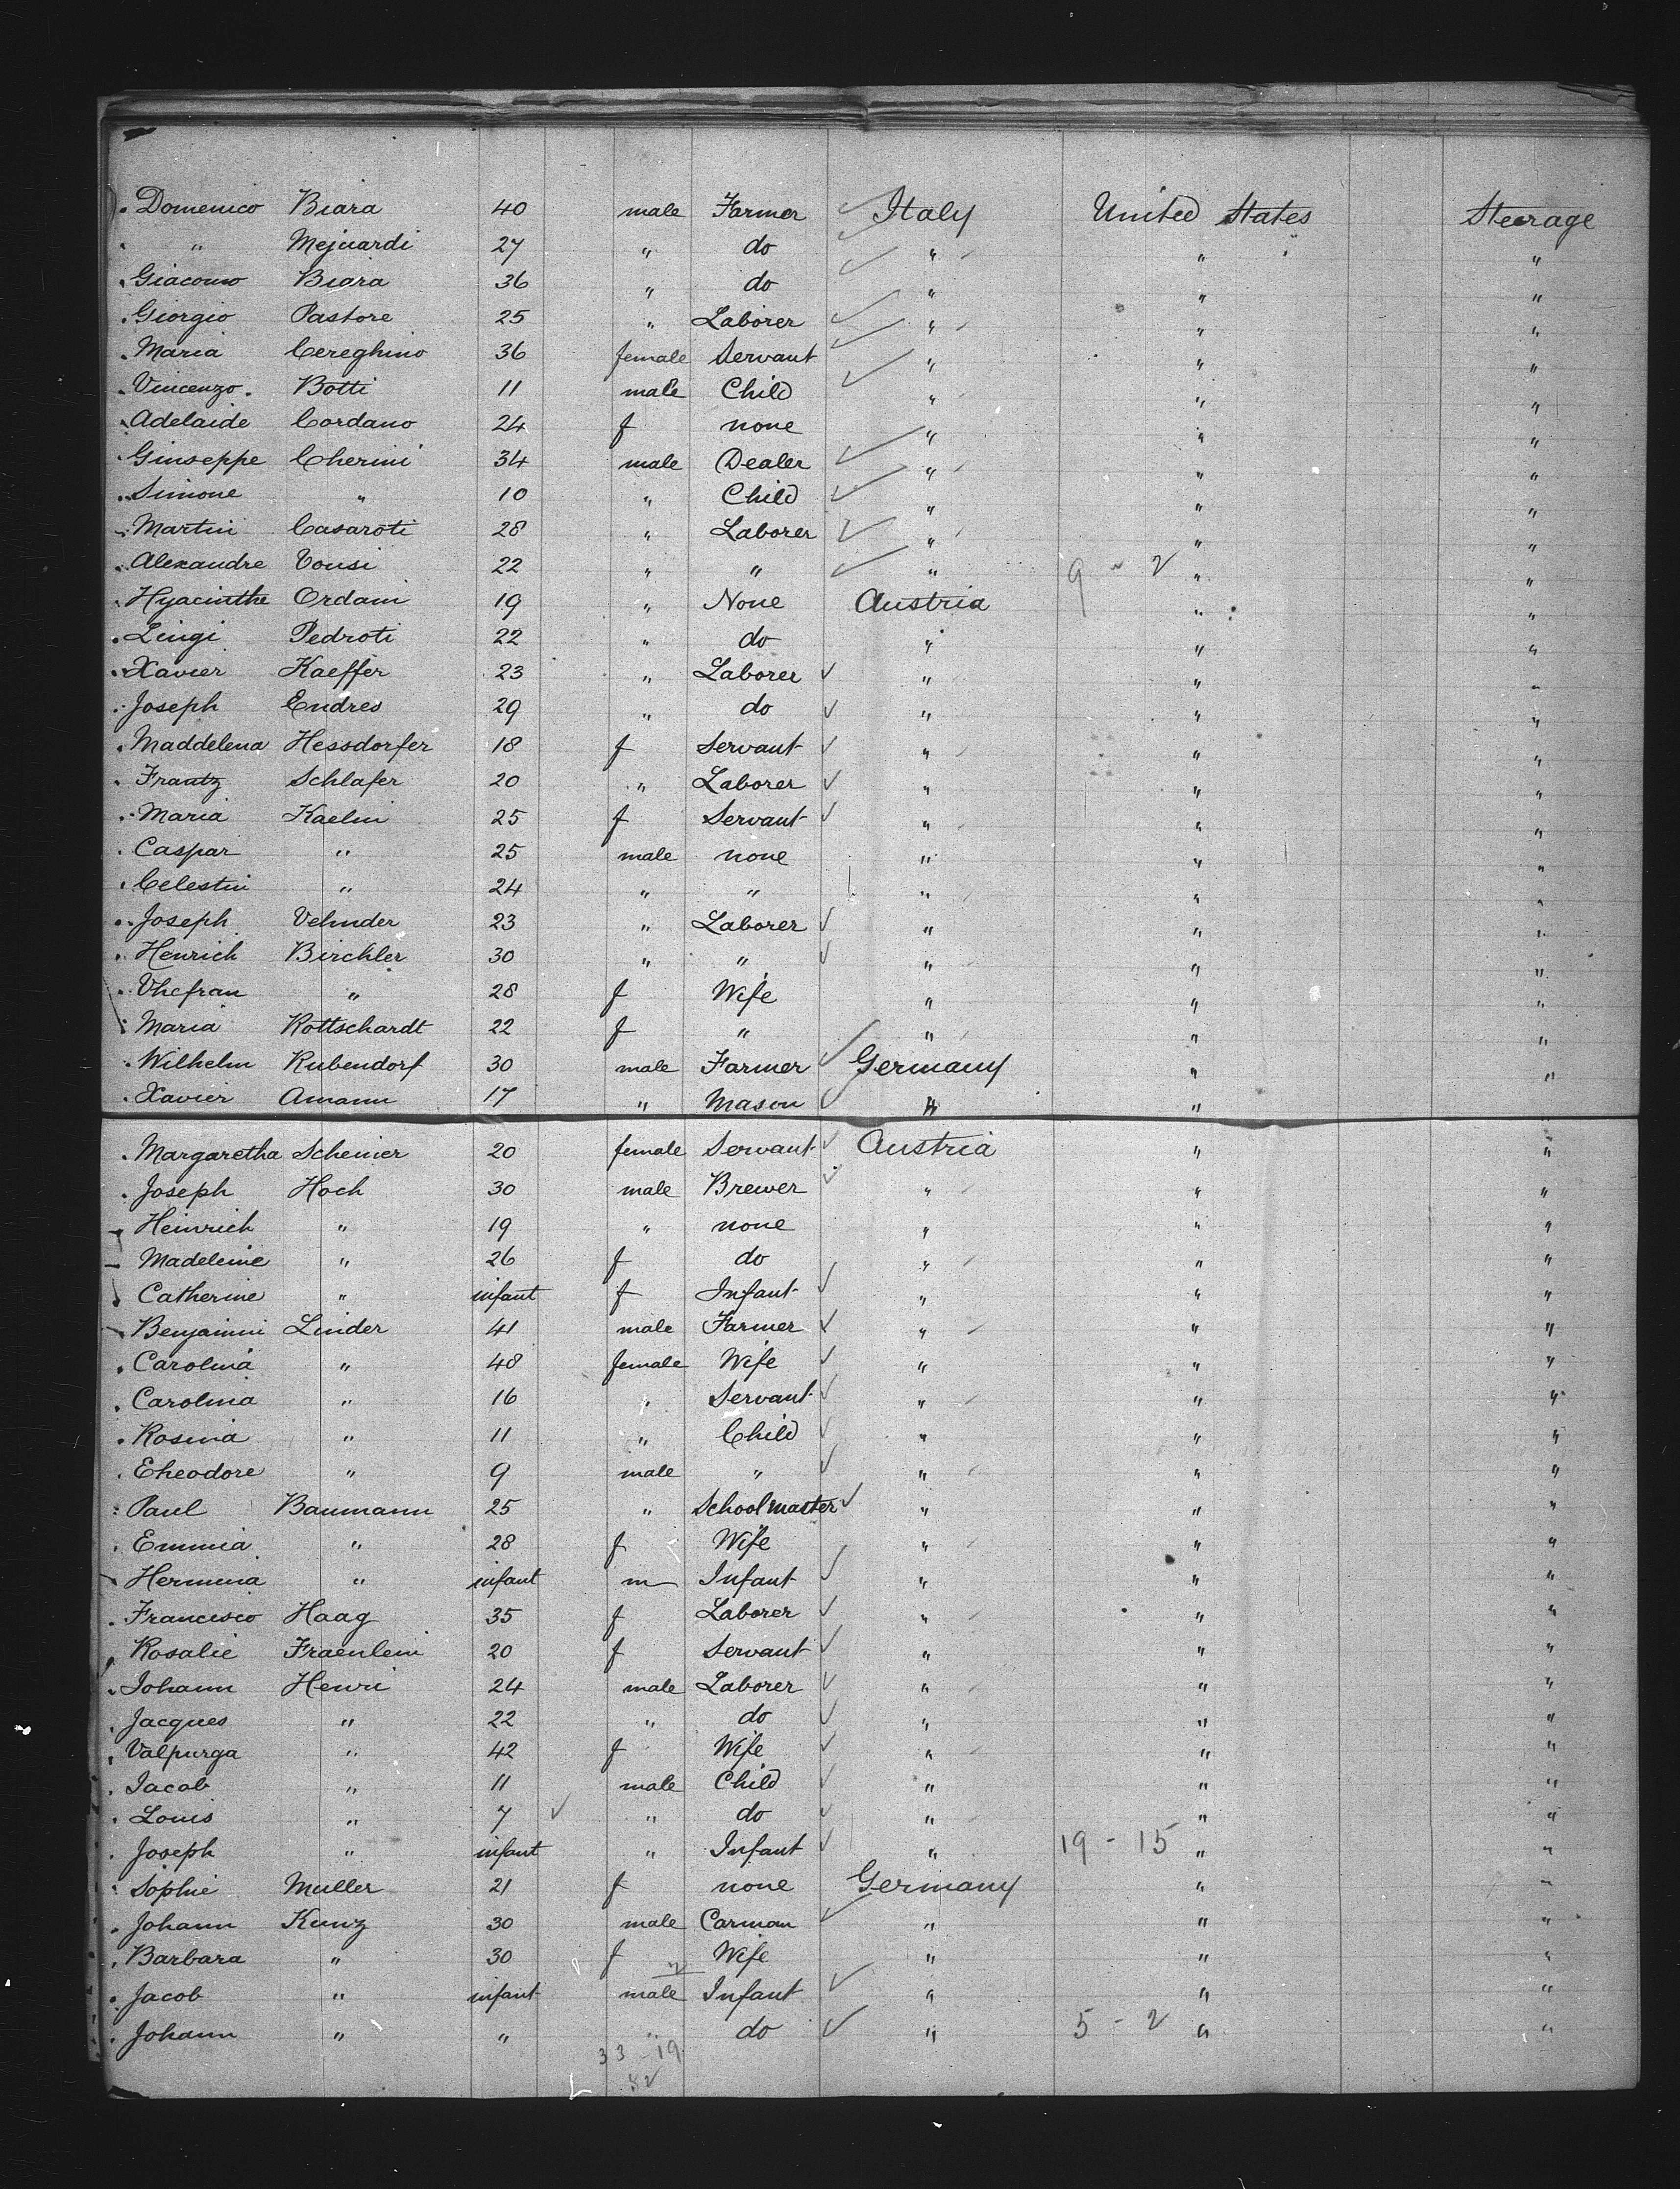 Domenico Biara 40 male Farmer Italy United States Steerage
" Mejuardi 27 " do " " "
Giacomo Biara 36 " do " " "
Giorgio Pastore 25 " Laborer " " "
Maria Cereghino 36 female Servant " " "
Vincenzo Botti 11 male Child " " "
Adelaide Cordano 24 f none " " "
Giuseppe Cherini 34 male Dealer " " "
Simone " 10 " Child " " "
Martin Casaroti 28 " Laborer " " "
Alexandre Tonsi 22 " " " 9 - 2 " "
Hyacinthe Ordani 19 " None Austria " "
Luigi Pedroti 22 " do " " "
Xavier Kaeffer 23 " Laborer " " "
Joseph Endres 29 " do " " "
Maddelena Hessdorfer 18 f Servant " " "
Frantz Schlafer 20 " Laborer " " "
Maria Kaelin 25 f Servant " " "
Caspar " 25 male none " " "
Celestin " 24 " " " " "
Joseph Vehnder 23 " Laborer " " "
Henrich Birchler 30 " " " " "
Vhefran " 28 f Wife " " "
Maria Rottschardt 22 f " " " "
Wilhelm Rubendorf 30 male Farmer Germany " "
Xavier Amann 17 " Mason " " "
Margaretha Scheiner 20 female Servant Austria " "
Joseph Hoch 30 male Brewer " " "
Heinrich " 19 " none " " "
Madeleine " 26 f do " " "
Catherine " infant f Infant " " "
Benjamin Linder 41 male Farmer " " "
Carolina " 48 female Wife " " "
Carolina " 16 " Servant " " "
Rosina " 11 " Child " " "
Eheodore " 9 male " " " "
Paul Baumann 25 " Schoolmaster " " "
Emmia " 28 f Wife " " "
Hermina " infant m Infant " " "
Francisco Haag 35 f Laborer " " "
Rosalie Fraenlein 20 f Servant " " "
Johann Henri 24 male Laborer " " "
Jacques " 22 " do " " "
Valpurga " 42 f Wife " " "
Jacob " 11 male Child " " "
Louis " 7 " do " " "
Joseph " infant " Infant " 19 - 15 " "
Sophie Muller 21 f none Germany " "
Johann Kunz 30 male Carman " " "
Barbara " 30 f Wife " " "
Jacob " infant male Infant " " "
Johann " " " do " 5 - 2 " "
33 - 19